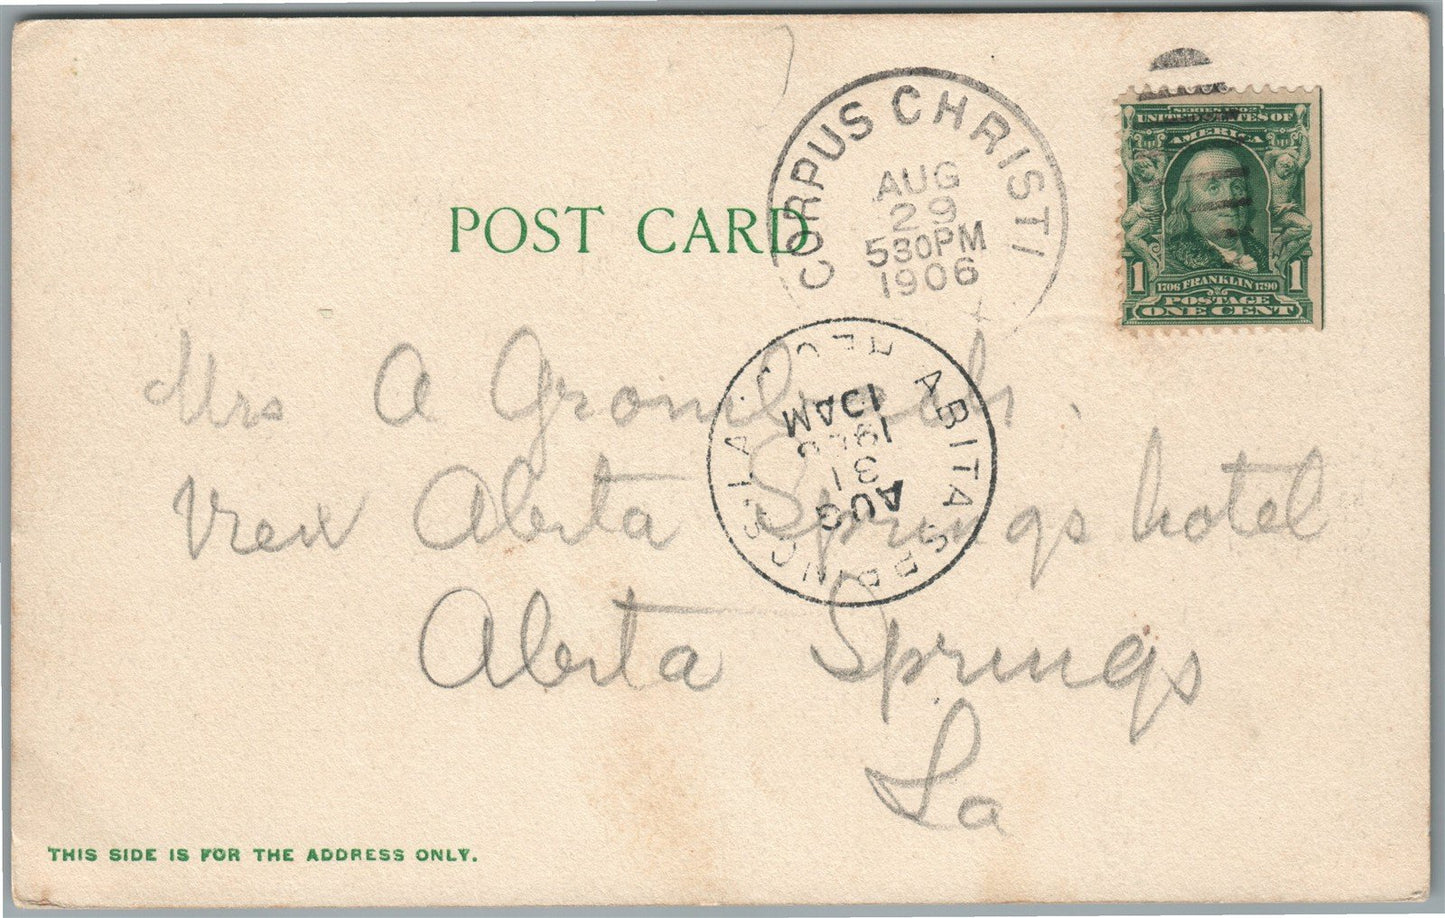 POST CARD
CORPUS CHRISTI
AUG
29
530PM
1906
SERIES 1902
UNITED STATES OF
AMERICA
1 1706 FRANKLIN 1790 1
POSTAGE
ONE CENT
Mrs A
ABITA SPRINGS, LA.
REC'D.
AUG
31
10AM
1906
Abita Springs hotel
Abita Springs
La
THIS SIDE IS FOR THE ADDRESS ONLY.